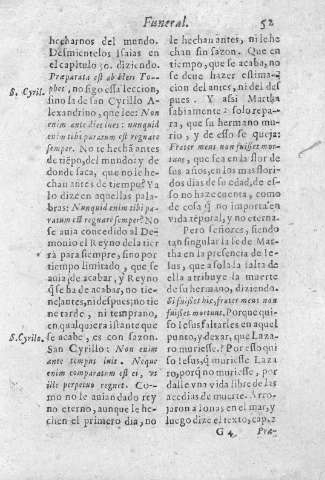 Funeral.
52
hecharnos del mundo.
Desmientelos Isaias en
el capitulo 30. diziendo.
Præparata est ab heri To-
phet, no sigo essa leccion,
S. Cyril.
sino la de san Cyrillo A-
lexandrino, que lee: Non
enim ante dies tues: nunquid
enim tibi paratum est regnare
semper. No te hechã antes
de tiẽpo, del mundo: y de
donde saca, que no le he-
chan antes de tiempo? Ya
lo dize en aquellas pala-
bras: Nunquid enim tibi pa-
ratum est regnare semper? No
se auia concedido al De-
monio el Reyno dela tier
rà para siempre, sino por
tiempo limitado, que se
auia de acabar, y Reyno
q̃ se ha de acabar, no tie-
ne antes, ni despues: no tie
ne tarde, ni temprano,
en qualquiera istante que
S. Cyrilo.
se acabe, es con sazon.
San Cyrillo: Non enim
ante tempus init. Neque
enim comparatum est ei, vt
ille perpetuo regnet. Co-
mo no le auian dado rey
no eterno, aunque le he-
chen el primero dia, no
le hechan antes, ni le he
chan sin sazon. Que en
tiempo, que se acaba, no
se deue hazer estima-
cion del antes, ni del des
pues. Y assi Martha
sabiamente solo repa-
ra, que su hermano mu-
rio; y de esso se queja:
Frater meus non fuisset mor-
tuus, que sea en la flor de
sus años, en los mas flori-
dos dias de su edad, de es-
so no haze cuenta, como
de cosa q̃ no importa en
vida tẽporal, y no eterna.
Pero señores, siendo
tan singular la fe de Mar-
tha en la presencia de Ie-
sus, que a sola la falta de
ella atribuye la muerte
de su hermano, diziendo.
Si fuisset hic, frater meus non
fuisset mortuus. Porque qui-
so Iesus faltarles en aquel
punto, y dexar, que Laza-
ro muriesse? Por esso qui
so Iesus, q̃ muriesse Laza
ro, porq̃ no muriesse, por
dalle vna vida libre de las
acedias de muerte. Arro-
jaron a Ionas en el mar, y
luego dize el texto, cap. 2
G 4
Præ-